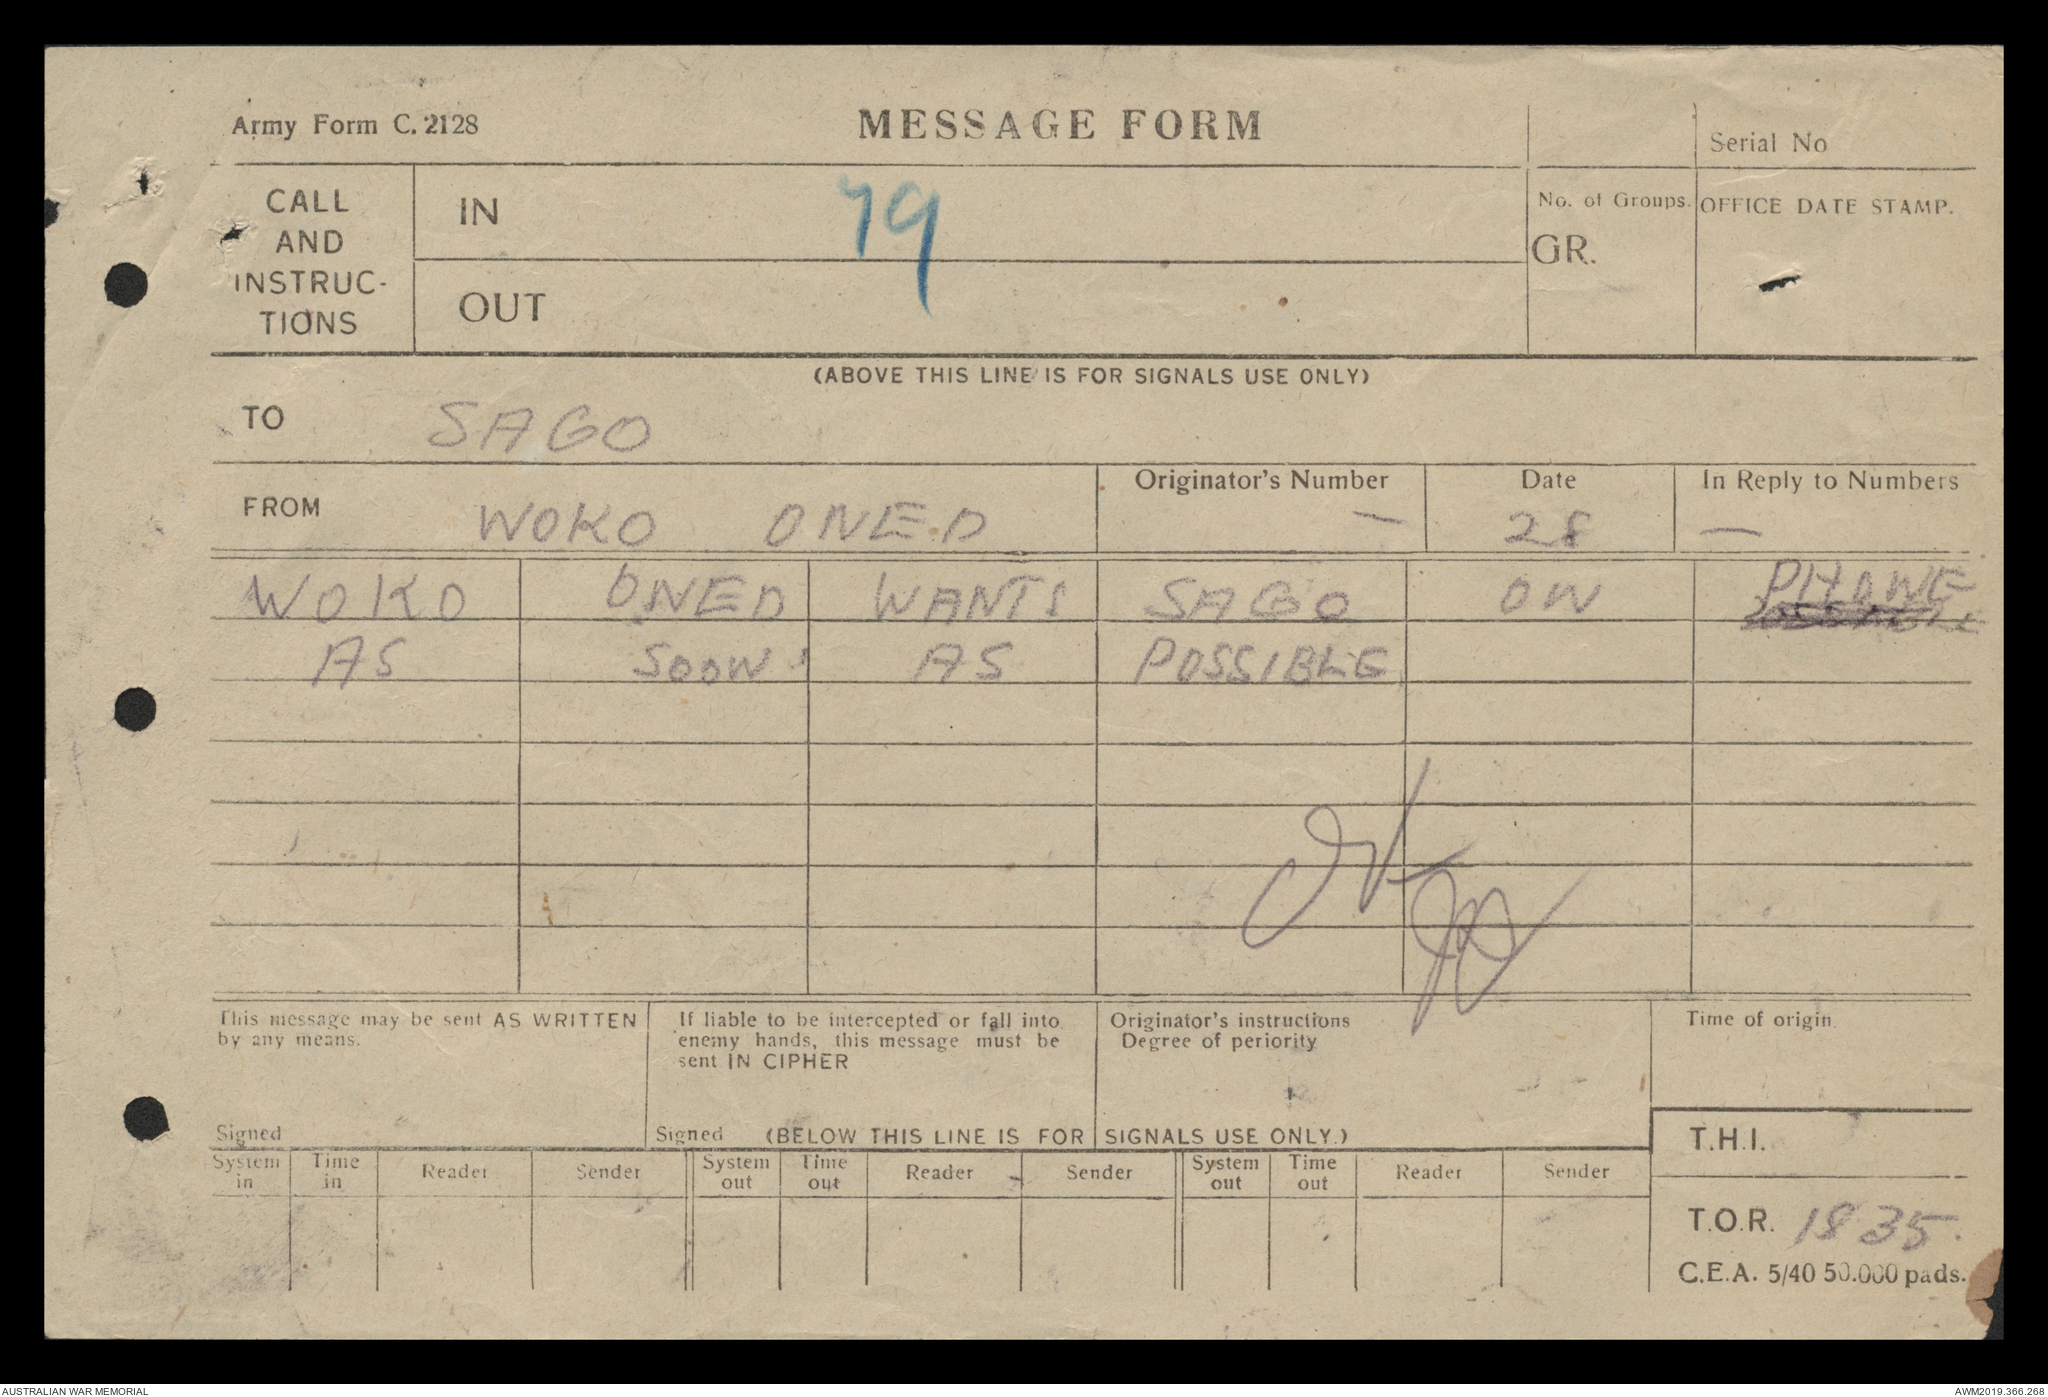 Army Form C. 2128
MESSAGE FORM
Serial No
CALL
AND
INSTRUC-
TIONS
IN
79
OUT
No. of Groups.
GR.
OFFICE DATE STAMP.
(ABOVE THIS LINE IS FOR SIGNALS USE ONLY)
TO SAGO
FROM WOKO ONED
Originator's Number
—
Date
28
In Reply to Numbers
—
WOKO ONED WANTS SAGO ON PHONE
AS SOON AS POSSIBLE
This message may be sent AS WRITTEN
by any means.
Signed
If liable to be intercepted or fall into
enemy hands, this message must be
sent IN CIPHER
Signed
Originator's instructions
Degree of periority
Time of origin
(BELOW THIS LINE IS FOR SIGNALS USE ONLY.)
System in Time in Reader Sender System out Time out Reader Sender System out Time out Reader Sender
T.H.I.
T.O.R. 1835
C.E.A. 5/40 50.000 pads.
AUSTRALIAN WAR MEMORIAL
AWM2019.366.268